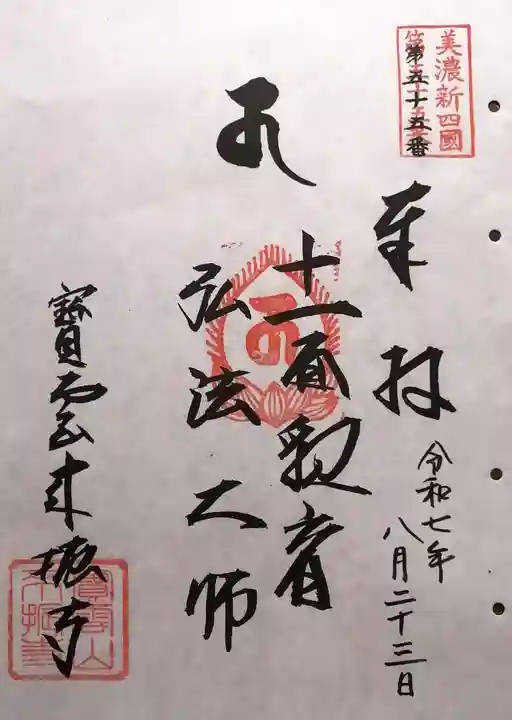 美濃新四國
第五十五番
奉拝
令和七年
八月二十三日
十一面観音
弘法大師
寶雲山
来振寺